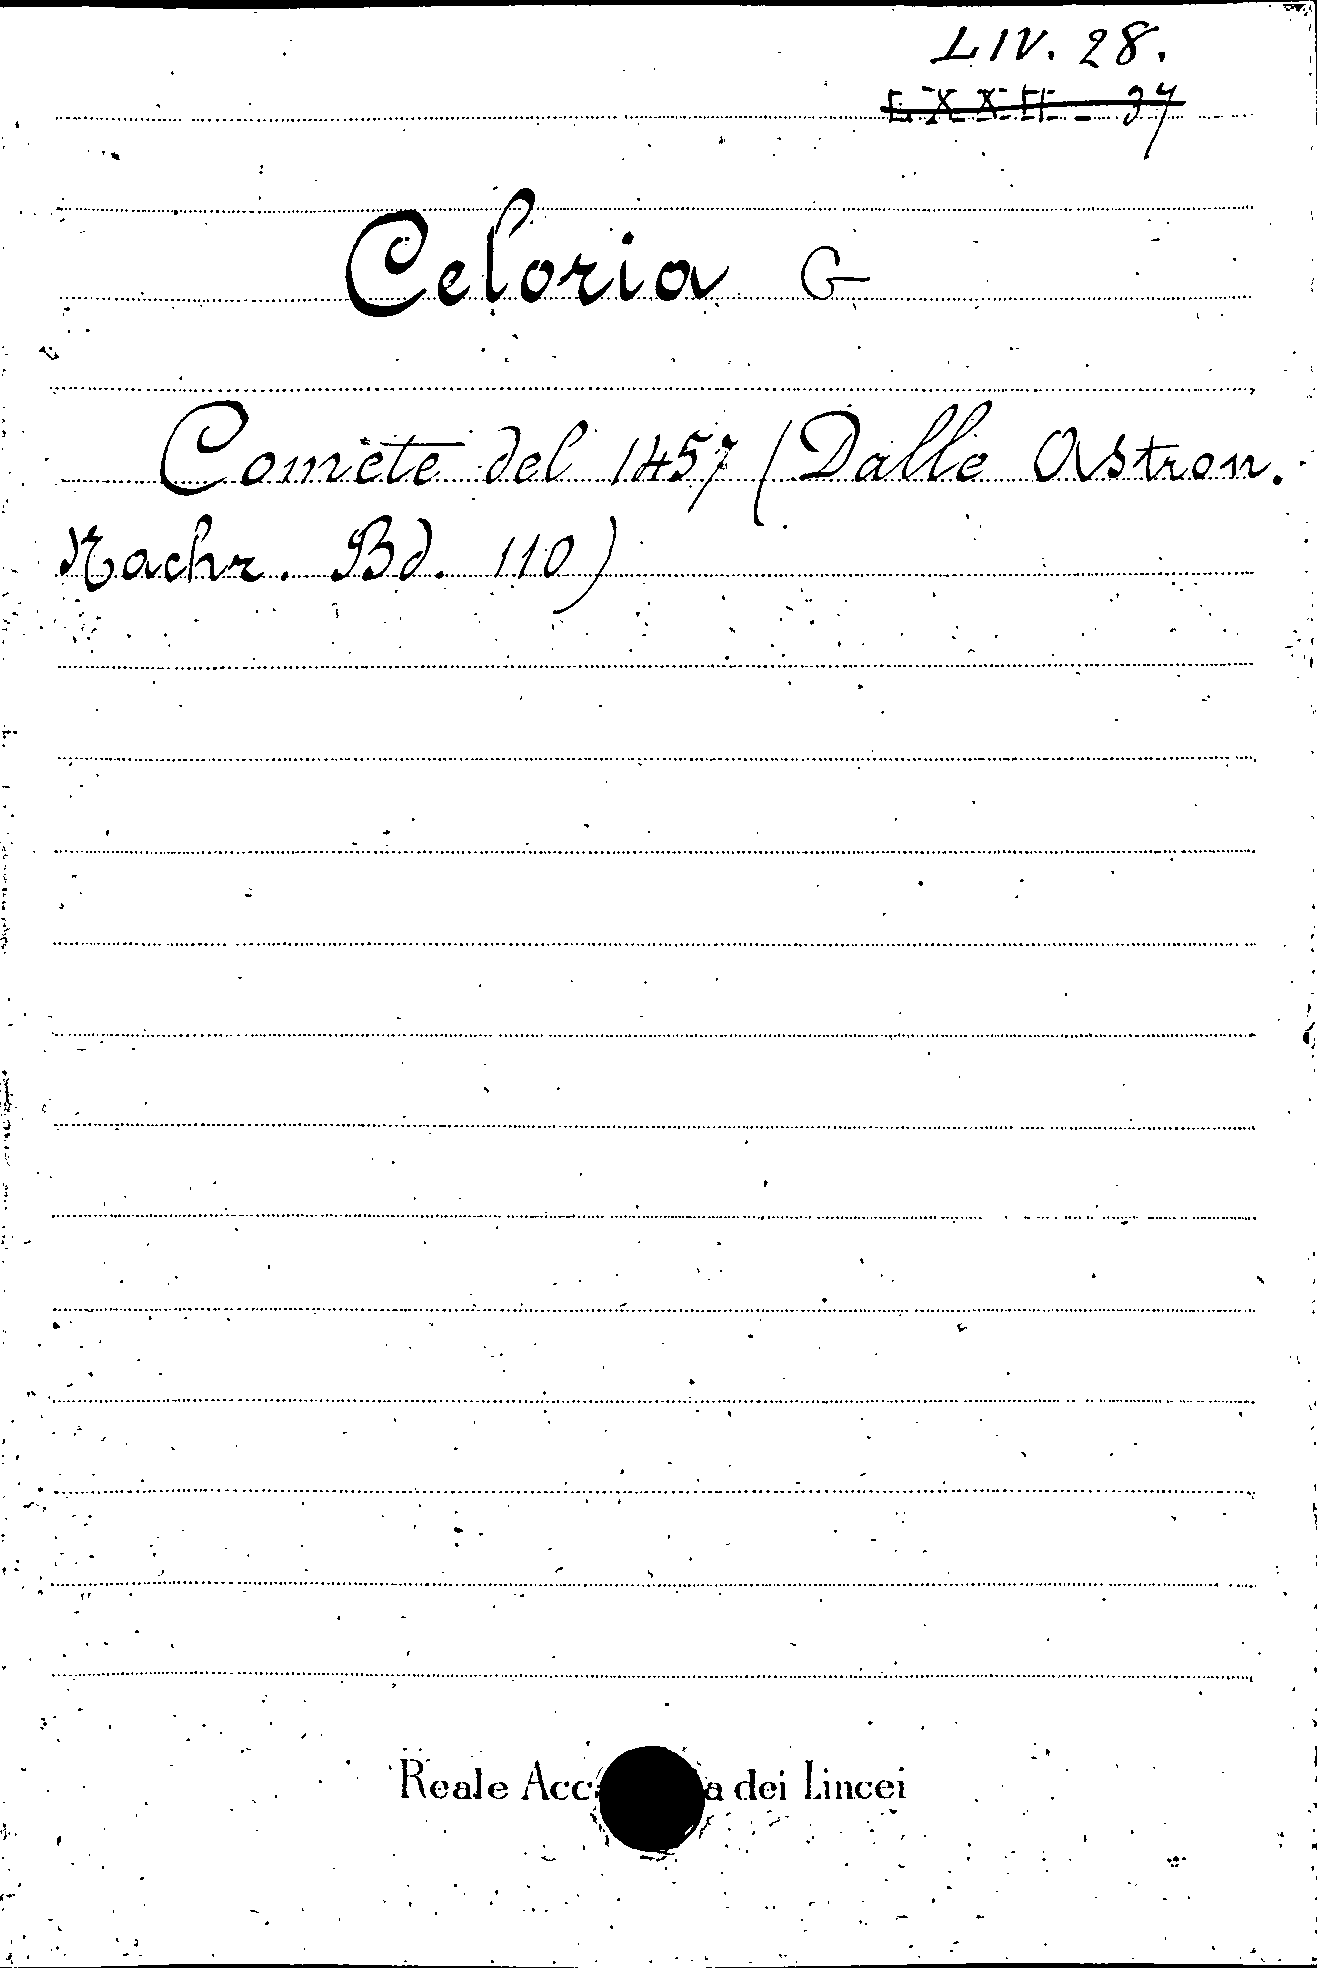 LIV. 28.
LXXII - 37
Celoria G
Comete del 1457 (Dalle Astron.
Nachr. Bd. 110)
Reale Acc a dei Lincei